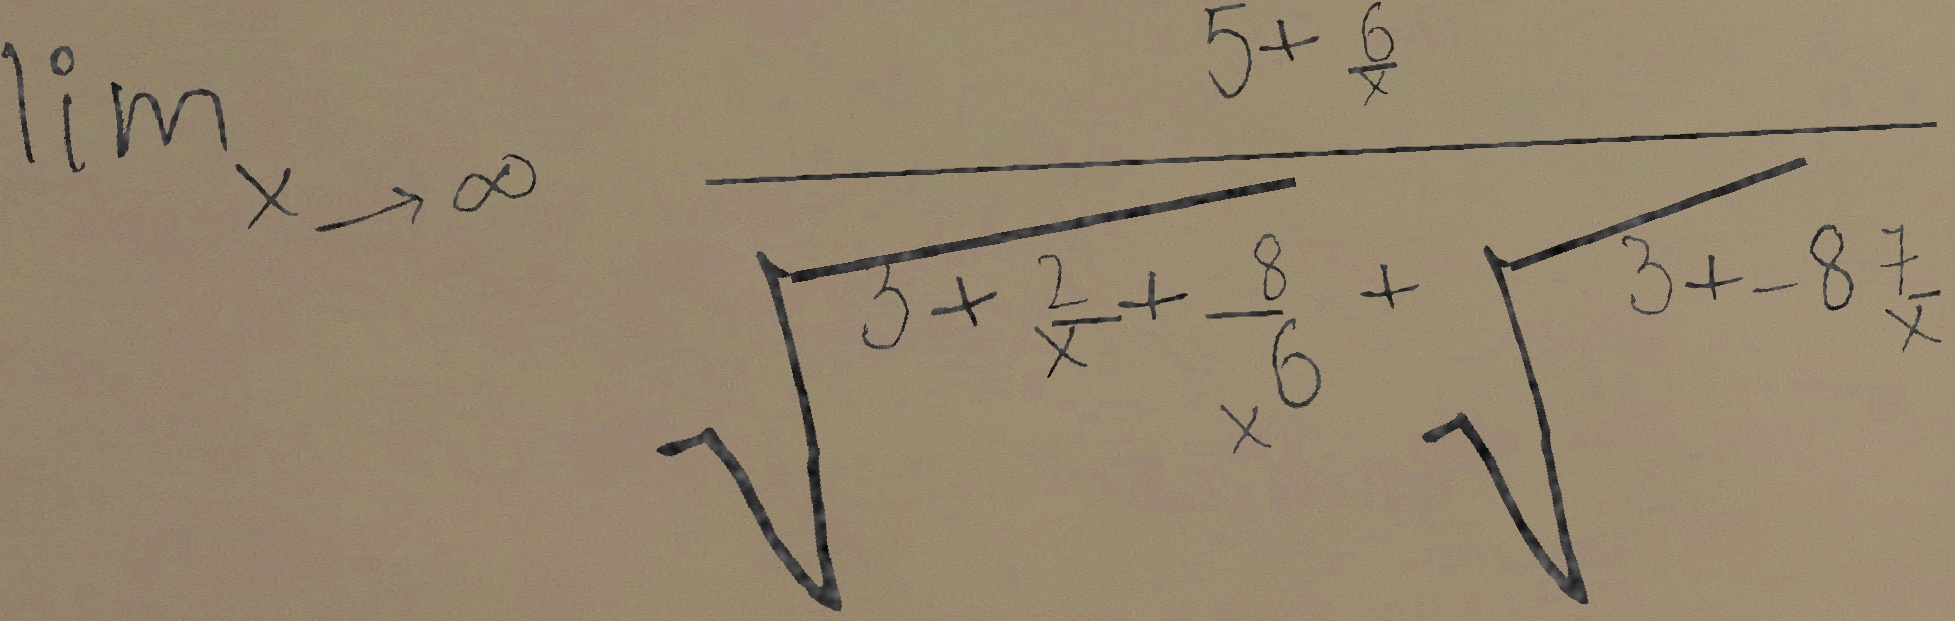 \lim_{x \to \infty} \frac{5 + \frac{6}{x}}{\sqrt{3 + \frac{2}{x} + \frac{8}{x^6}} + \sqrt{3 + -8\frac{7}{x}}}